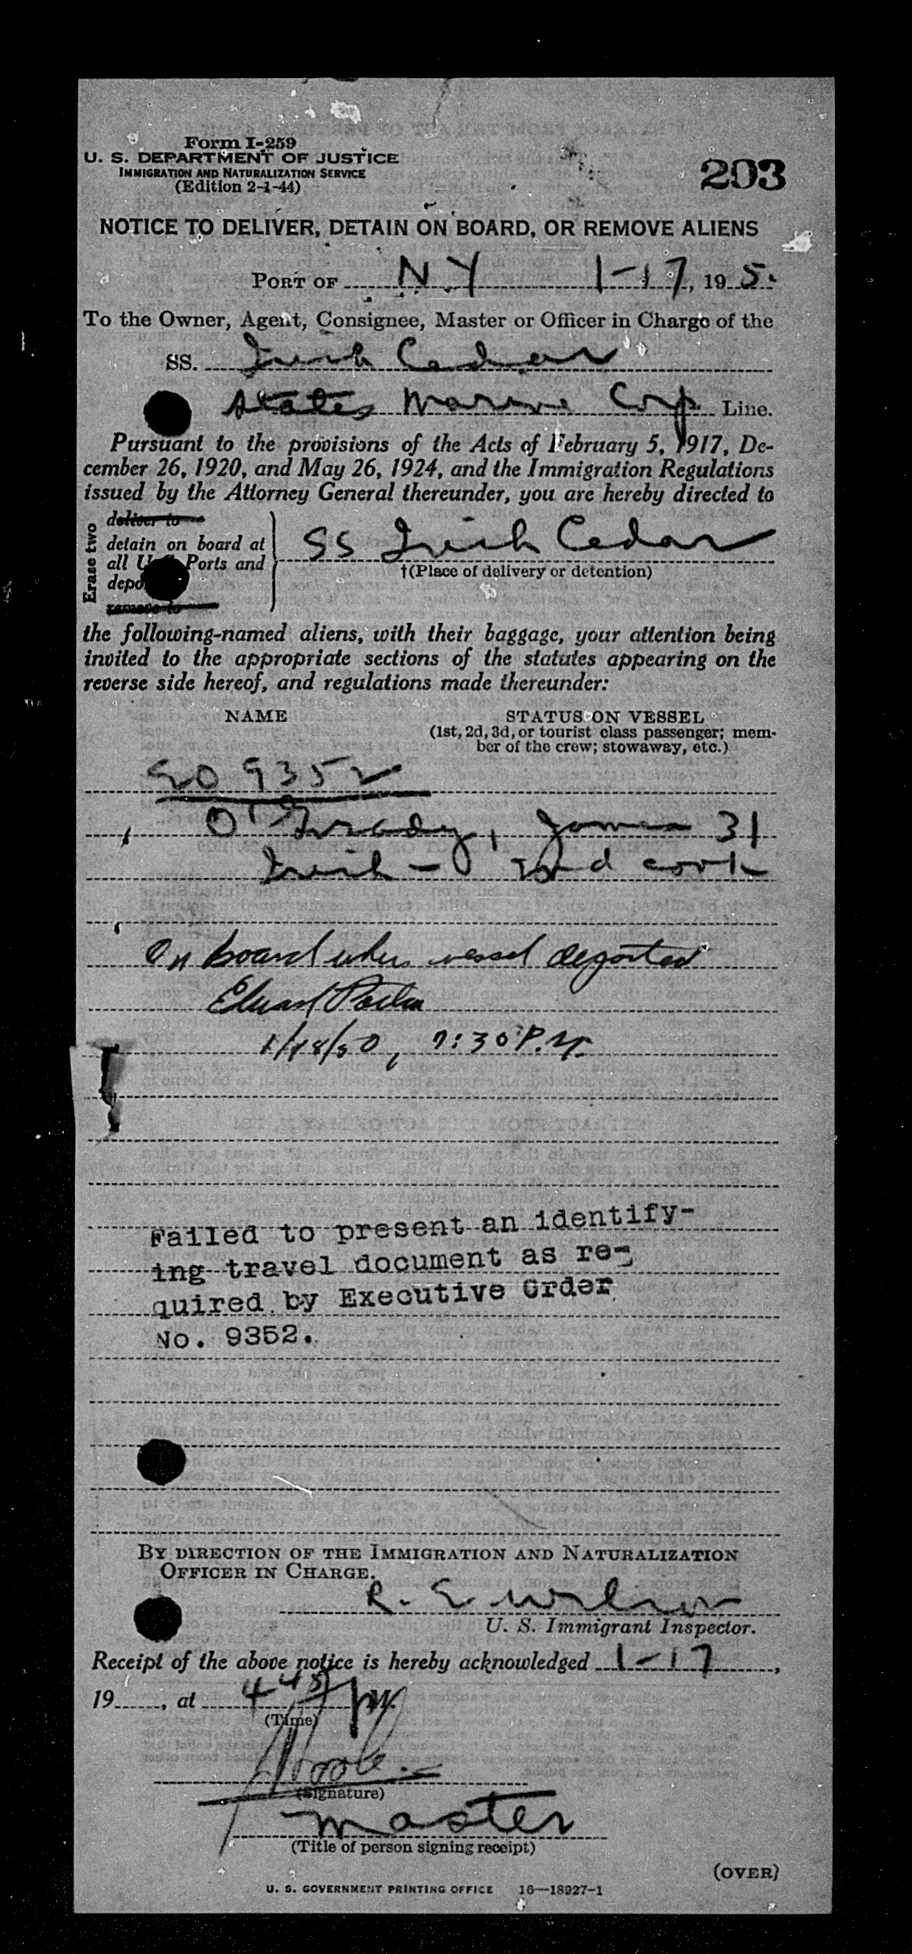 Form I-259
U. S. DEPARTMENT OF JUSTICE
IMMIGRATION AND NATURALIZATION SERVICE
(Edition 2-1-44)
203
NOTICE TO DELIVER, DETAIN ON BOARD, OR REMOVE ALIENS
PORT OF N Y 1-17, 19 5.
To the Owner, Agent, Consignee, Master or Officer in Charge of the
SS. Irish Cedar
States Marine Corp Line.
Pursuant to the provisions of the Acts of February 5, 1917, De-
cember 26, 1920, and May 26, 1924, and the Immigration Regulations
issued by the Attorney General thereunder, you are hereby directed to
Erase two
deliver to
detain on board at
all U. Ports and
depo
remove to
SS Irish Cedar
†(Place of delivery or detention)
the following-named aliens, with their baggage, your attention being
invited to the appropriate sections of the statutes appearing on the
reverse side hereof, and regulations made thereunder:
NAME
STATUS ON VESSEL
(1st, 2d, 3d, or tourist class passenger; mem-
ber of the crew; stowaway, etc.)
EO 9352
O'Grady, James 31
Irish - 2nd cook
On board when vessel departed
1/18/50, 7:30 P.M.
Failed to present an identify-
ing travel document as re-
quired by Executive Order
No. 9352.
BY DIRECTION OF THE IMMIGRATION AND NATURALIZATION
OFFICER IN CHARGE.
R. E. Wilson
U. S. Immigrant Inspector.
Receipt of the above notice is hereby acknowledged 1-17,
19, at 4 45 PM.
(Time)
(Signature)
Master
(Title of person signing receipt)
(OVER)
U. S. GOVERNMENT PRINTING OFFICE 16—18927-1